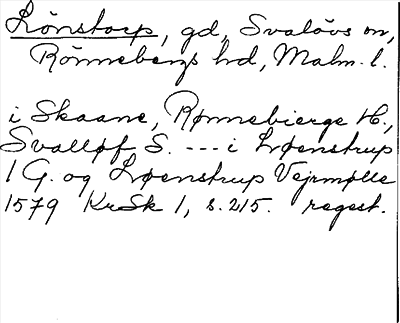 Lönstorp, gd, Svalövs sn,
Rönnebergs hd, Malm. l.
i Skaane, Rønnebierge H.,
Svalløf S. --- i Løenstrup
1 G. og Løenstrup Vejrmølle
1579 KrSk 1, s. 215. regest.